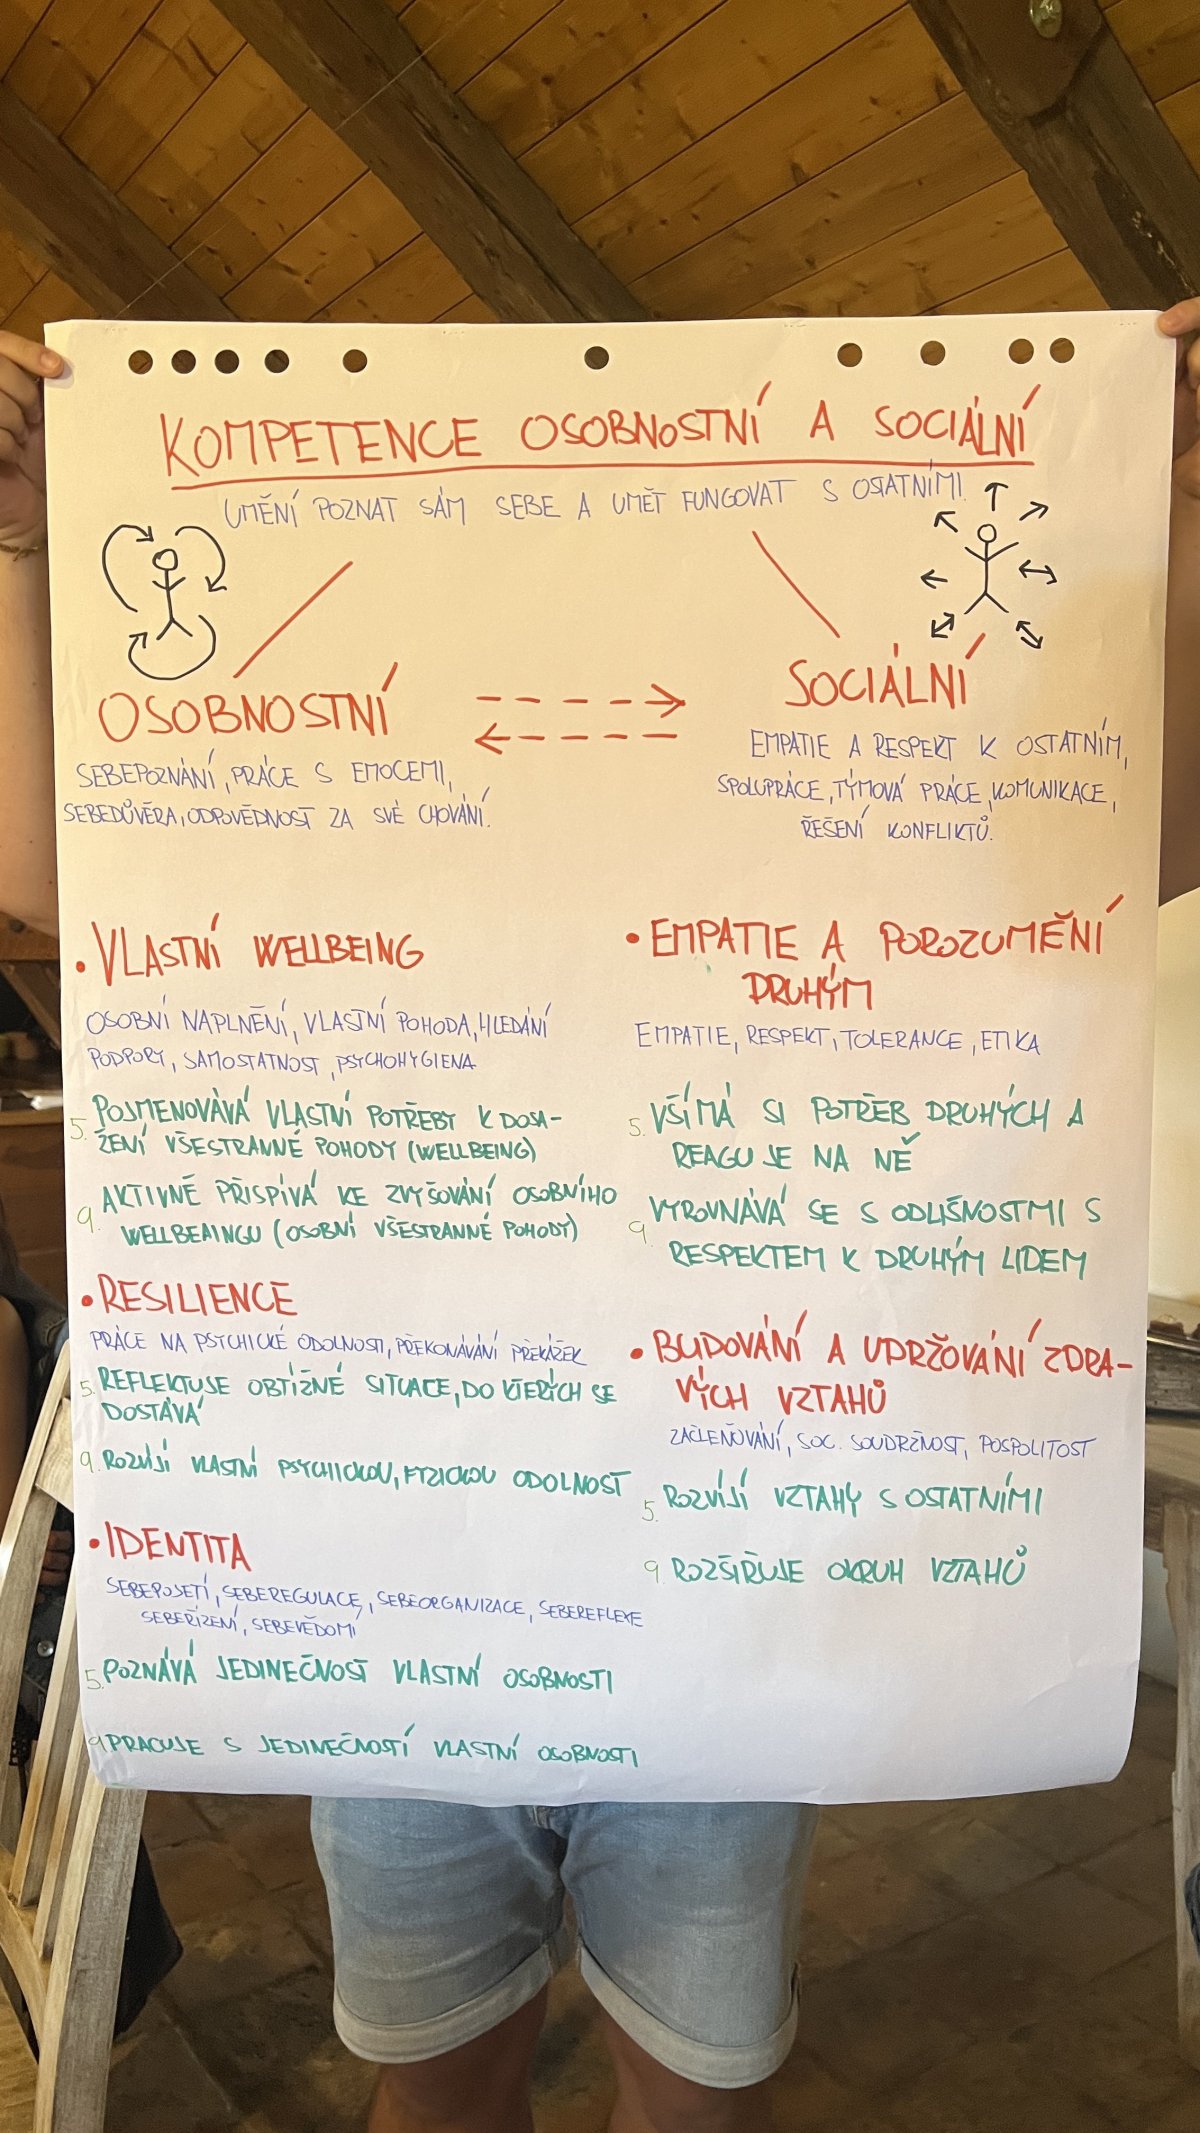 KOMPETENCE OSOBNOSTNÍ A SOCIÁLNÍ
UMĚNÍ POZNAT SÁM SEBE A UMĚT FUNGOVAT S OSTATNÍMI.
OSOBNOSTNÍ
SEBEPOZNÁNÍ, PRÁCE S EMOCEMI,
SEBEDŮVĚRA, ODPOVĚDNOST ZA SVÉ CHOVÁNÍ.
SOCIÁLNÍ
EMPATIE A RESPEKT K OSTATNÍM,
SPOLUPRÁCE, TÝMOVÁ PRÁCE, KOMUNIKACE,
ŘEŠENÍ KONFLIKTŮ.
• VLASTNÍ WELLBEING
OSOBNÍ NAPLNĚNÍ, VLASTNÍ POHODA, HLEDÁNÍ
PODPORY, SAMOSTATNOST, PSYCHOHYGIENA
5. POJMENOVÁVÁ VLASTNÍ POTŘEBY K DOSA-
ŽENÍ VŠESTRANNÉ POHODY (WELLBEING)
9. AKTIVNĚ PŘISPÍVÁ KE ZVYŠOVÁNÍ OSOBNÍHO
WELLBEAINGU (OSOBNÍ VŠESTRANNÉ POHODY)
• RESILIENCE
PRÁCE NA PSYCHICKÉ ODOLNOSTI, PŘEKONÁVÁNÍ PŘEKÁŽEK
5. REFLEKTUJE OBTÍŽNÉ SITUACE, DO KTERÝCH SE
DOSTÁVÁ
9. ROZVÍJÍ VLASTNÍ PSYCHICKOU, FYZICKOU ODOLNOST
• IDENTITA
SEBEPOJETÍ, SEBEREGULACE, SEBEORGANIZACE, SEBEREFLEXE
SEBEŘÍZENÍ, SEBEVĚDOMÍ
5. POZNÁVÁ JEDINEČNOST VLASTNÍ OSOBNOSTI
9. PRACUJE S JEDINEČNOSTÍ VLASTNÍ OSOBNOSTI
• EMPATIE A POROZUMĚNÍ
DRUHÝM
EMPATIE, RESPEKT, TOLERANCE, ETIKA
5. VŠÍMÁ SI POTŘEB DRUHÝCH A
REAGUJE NA NĚ
9. VYROVNÁVÁ SE S ODLIŠNOSTMI S
RESPEKTEM K DRUHÝM LIDEM
• BUDOVÁNÍ A UDRŽOVÁNÍ ZDRA-
VÝCH VZTAHŮ
ZAČLEŇOVÁNÍ, SOC. SOUDRŽNOST, POSPOLITOST
5. ROZVÍJÍ VZTAHY S OSTATNÍMI
9. ROZŠIŘUJE OKRUH VZTAHŮ